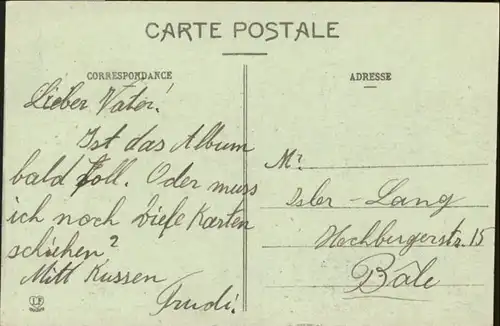 CARTE POSTALE
CORRESPONDANCE
ADRESSE
Lieber Vater!
Ist das Album
bald foll. Oder muss
ich noch Viele Karten
schiken?
Mitt Kussen
Trudi.
Mr.
Isler - Lang
Hochbergerstr. 15
Bâle
LF